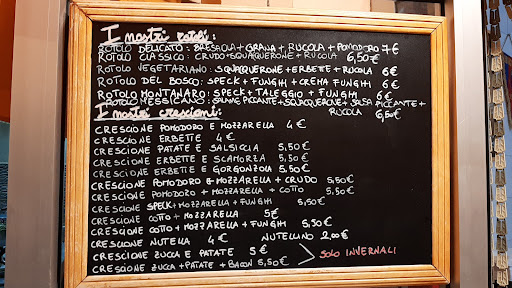 I nostri rotoli:
ROTOLO DELICATO: BRESAOLA+GRANA+RUCOLA+POMODORO 7€
ROTOLO CLASSICO: CRUDO+SQUAQUERONE+RUCOLA 6,50€
ROTOLO VEGETARIANO: SQUAQUERONE+ERBETTE+RUCOLA 6€
ROTOLO DEL BOSCO: SPECK+FUNGHI+CREMA FUNGHI 6€
ROTOLO MONTANARO: SPECK+TALEGGIO+FUNGHI 6€
ROTOLO MESSICANO: SALAME PICCANTE+SQUAQUERONE+SALSA PICCANTE+
RUCOLA 6,50€
I nostri crescioni:
CRESCIONE POMODORO E MOZZARELLA 4€
CRESCIONE ERBETTE 4€
CRESCIONE PATATE E SALSICCIA 5,50€
CRESCIONE ERBETTE E SCAMORZA 5,50€
CRESCIONE ERBETTE E GORGONZOLA 5,50€
CRESCIONE POMODORO E MOZZARELLA + CRUDO 5,50€
CRESCIONE POMODORO + MOZZARELLA + COTTO 5,50€
CRESCIONE SPECK+MOZZARELLA+FUNGHI 5,50€
CRESCIONE COTTO + MOZZARELLA 5€
CRESCIONE COTTO + MOZZARELLA + FUNGHI 5,50€
CRESCIONE NUTELLA 4€ NUTELLINO 2,00€
CRESCIONE ZUCCA E PATATE 5€
CRESCIONE ZUCCA+PATATE+BACON 5,50€ > SOLO INVERNALI